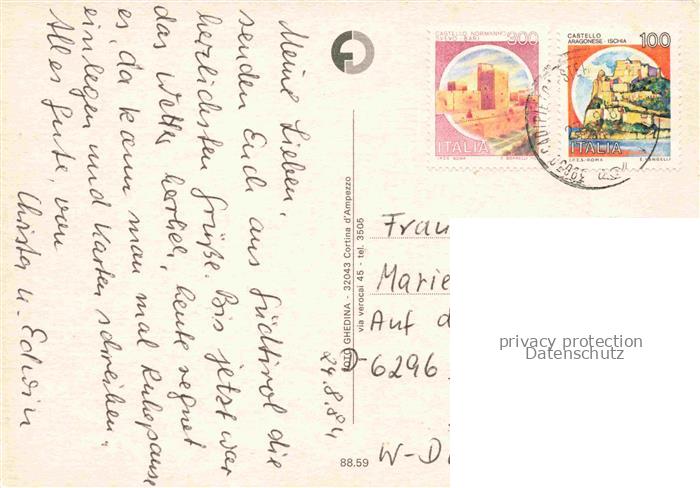 Meine Lieben,
senden Euch aus Südtirol die
herzlichsten Grüße. Bis jetzt war
das Wetter herrlich, heute regnet
es, da kann man mal Ruhepause
einlegen und Karten schreiben.
Alles Gute, von
Christa u. Edwin
FOTO GHEDINA - 32043 Cortina d'Ampezzo
via verocai 45 - tel. 3505
29.8.84
88.59
CASTELLO NORMANNO
SVEVO - BARI
300
ITALIA
I.P.Z.S. ROMA
CASTELLO
ARAGONESE - ISCHIA
100
ITALIA
I.P.Z.S. - ROMA
E. VANGELLI
Frau
Marie
Auf d
D-6296
W-D
privacy protection
Datenschutz